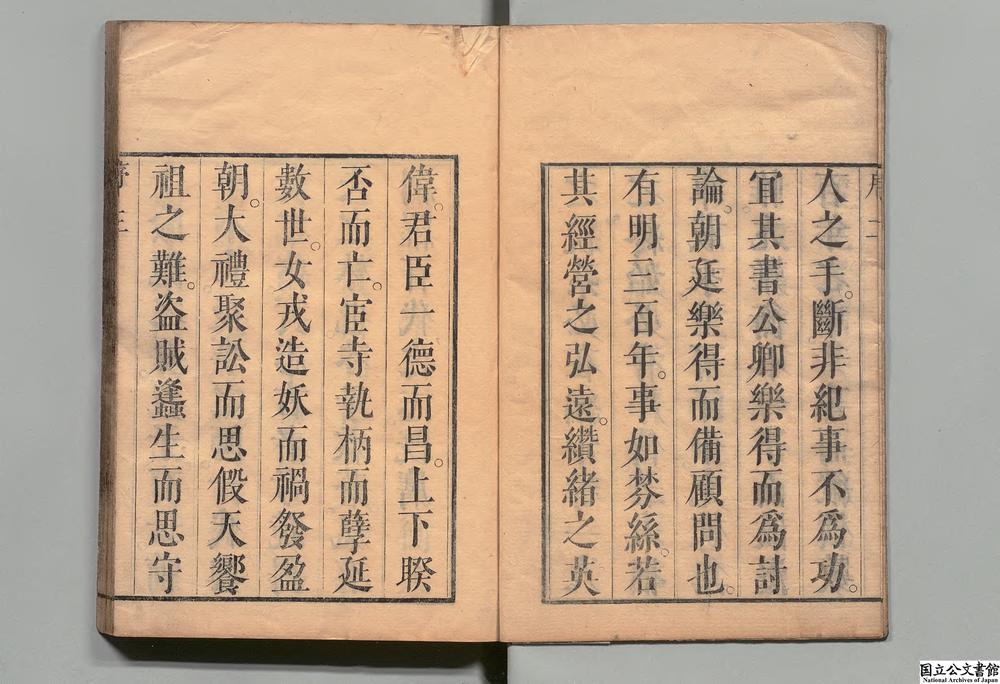 人之手。斷非紀事不爲功。
冝其書公卿樂得而爲討
論。朝廷樂得而備顧問也。
有明三百年。事如棼絲。若
其經營之弘遠。纘緒之英
偉。君臣一德而昌。上下睽
否而亡。宦寺執柄而孽延
數世。女戎造妖而禍發盈
朝。大禮聚訟而思假天饗
祖之難。盗賊蠭生而思守
国立公文書館
National Archives of Japan